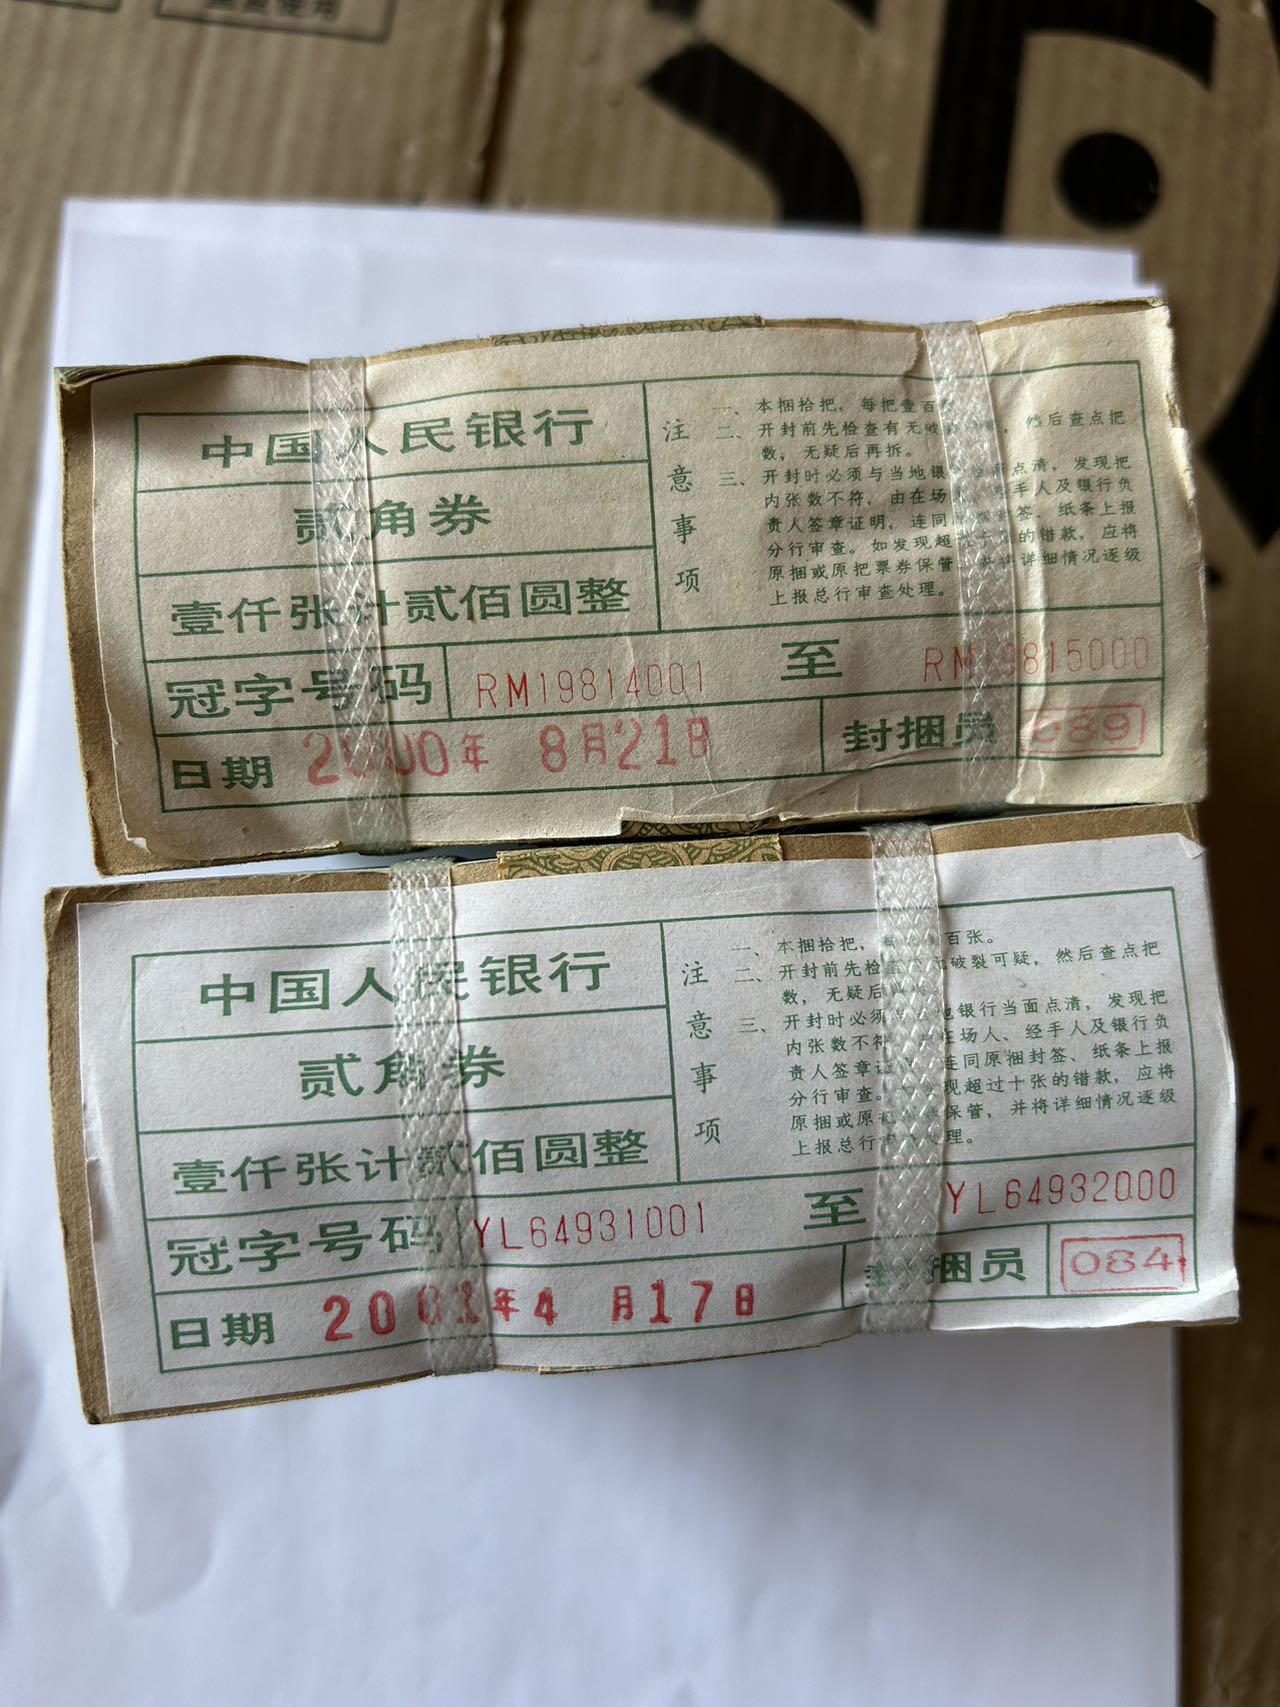 重复使用
中国人民银行
贰角券
壹仟张计贰佰圆整
冠字号码 RM19814001 至 RM19815000
日期 2000年 8月21日 封捆员 689
注意事项
一、本捆拾把，每把壹百
二、开封前先检查有无破 ，然后查点把
数，无疑后再拆。
三、开封时必须与当地银 点清，发现把
内张数不符，由在场 手人及银行负
责人签章证明，连同 签、纸条上报
分行审查。如发现超 的错款，应将
原捆或原把票券保管 并将详细情况逐级
上报总行审查处理。
中国人民银行
贰角券
壹仟张计贰佰圆整
冠字号码 YL64931001 至 YL64932000
日期 2001年4月17日 封捆员 084
注意事项
一、本捆拾把， 百张。
二、开封前先检 无破裂可疑，然后查点把
数，无疑后
三、开封时必须 地银行当面点清，发现把
内张数不符 在场人、经手人及银行负
责人签章证 连同原捆封签、纸条上报
分行审查。 现超过十张的错款，应将
原捆或原 保管，并将详细情况逐级
上报总行 理。